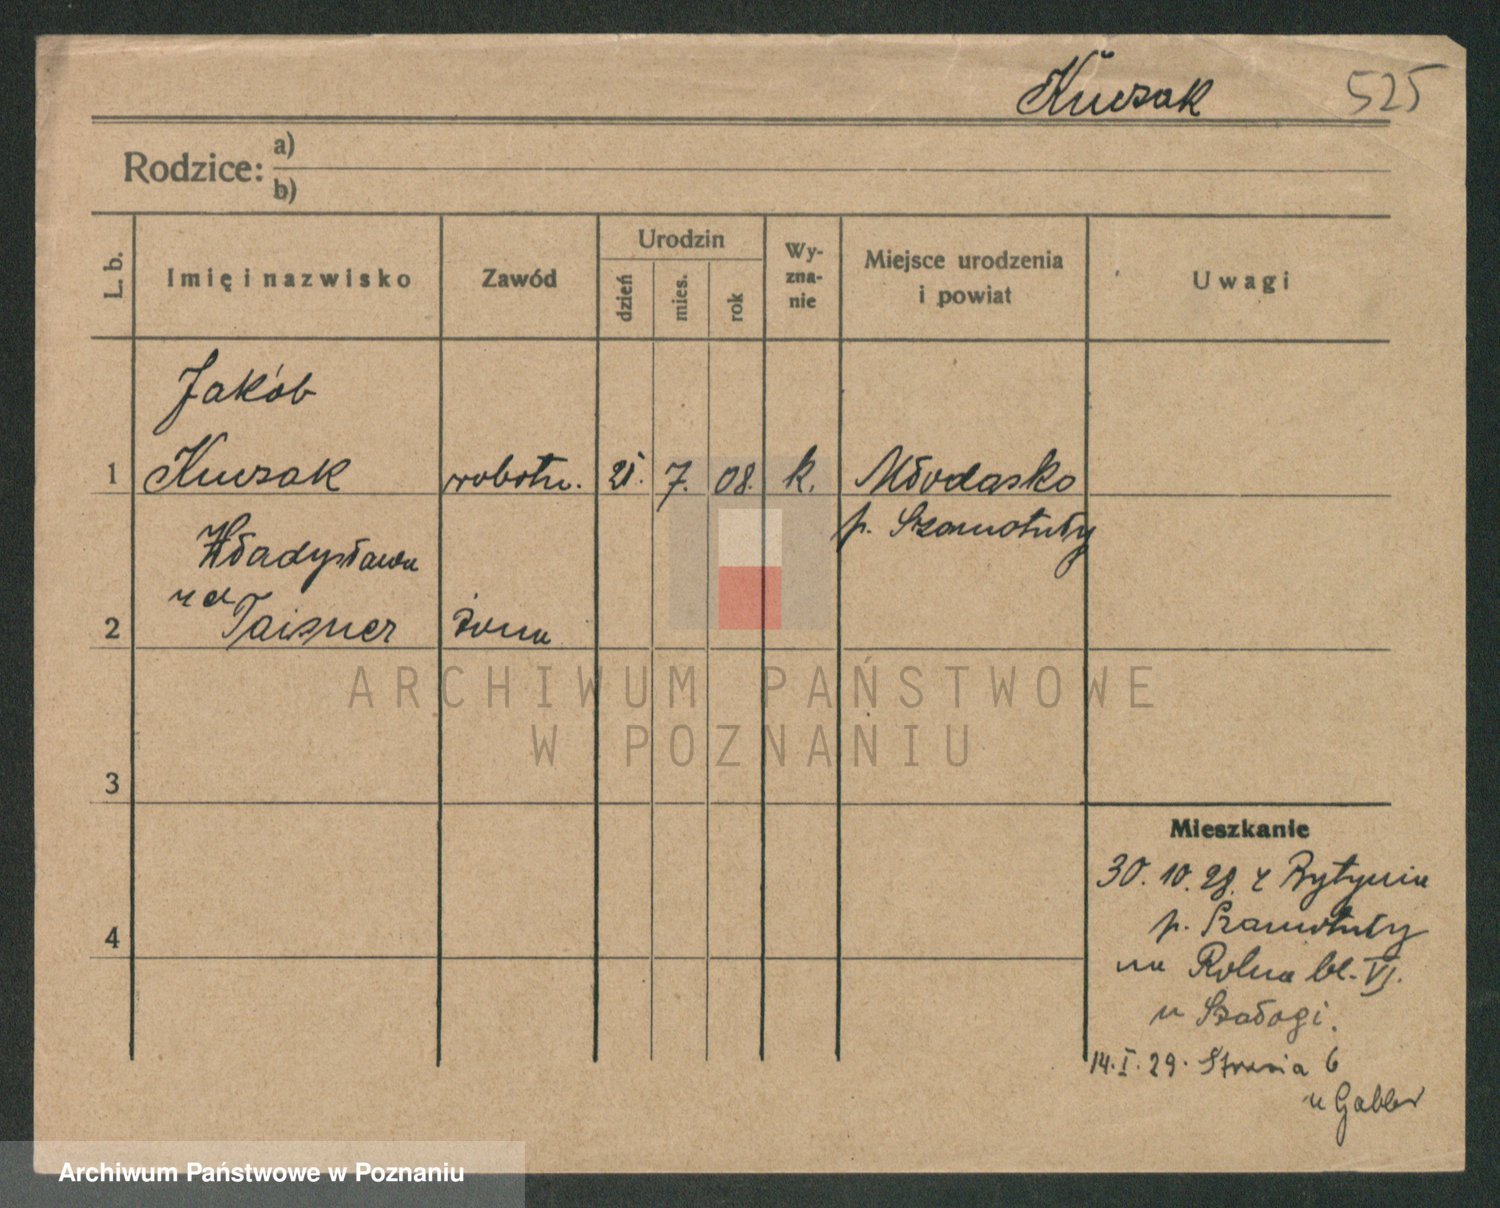 Kuczak 525
Rodzice: a)
b)
L. b. Imię i nazwisko Zawód Urodzin dzień mies. rok Wy-zna-nie Miejsce urodzenia i powiat Uwagi
Jakób
1 Kuczak robotn. 21. 7. 08. k. Młodasko
p. Szamotuły
Władysława
zd
2 Taisner żona
3
4
Mieszkanie
30. 10. 28. z Bytynia
p. Szamotuły
na Rolna bl. VI.
u Szałogi.
14. I. 29. 6
u Gabler
ARCHIWUM PAŃSTWOWE
W POZNANIU
Archiwum Państwowe w Poznaniu